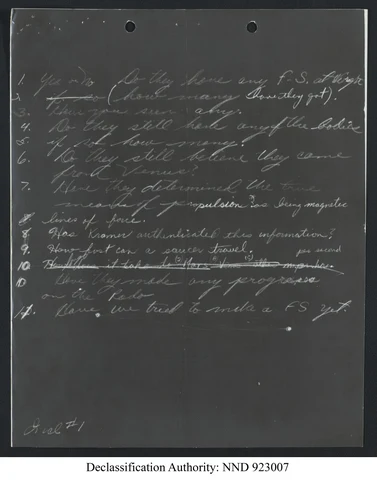 1. Yes - No Do they have any F-S. at Wright
2. If so (how many have they got).
3. Have you seen any.
4. Do they still have any of the bodies
5. if so how many?
6. Do they still believe they came
from Venus?
7. Have they determined the true
means of propulsion as being magnetic
lines of force.
8. Has Kramer authenticated this information?
9. How fast can a saucer travel. per second
10. it take to Mars
Have they made any progress
on the Radio
Have we tried to make a FS yet.
#1
Declassification Authority: NND 923007